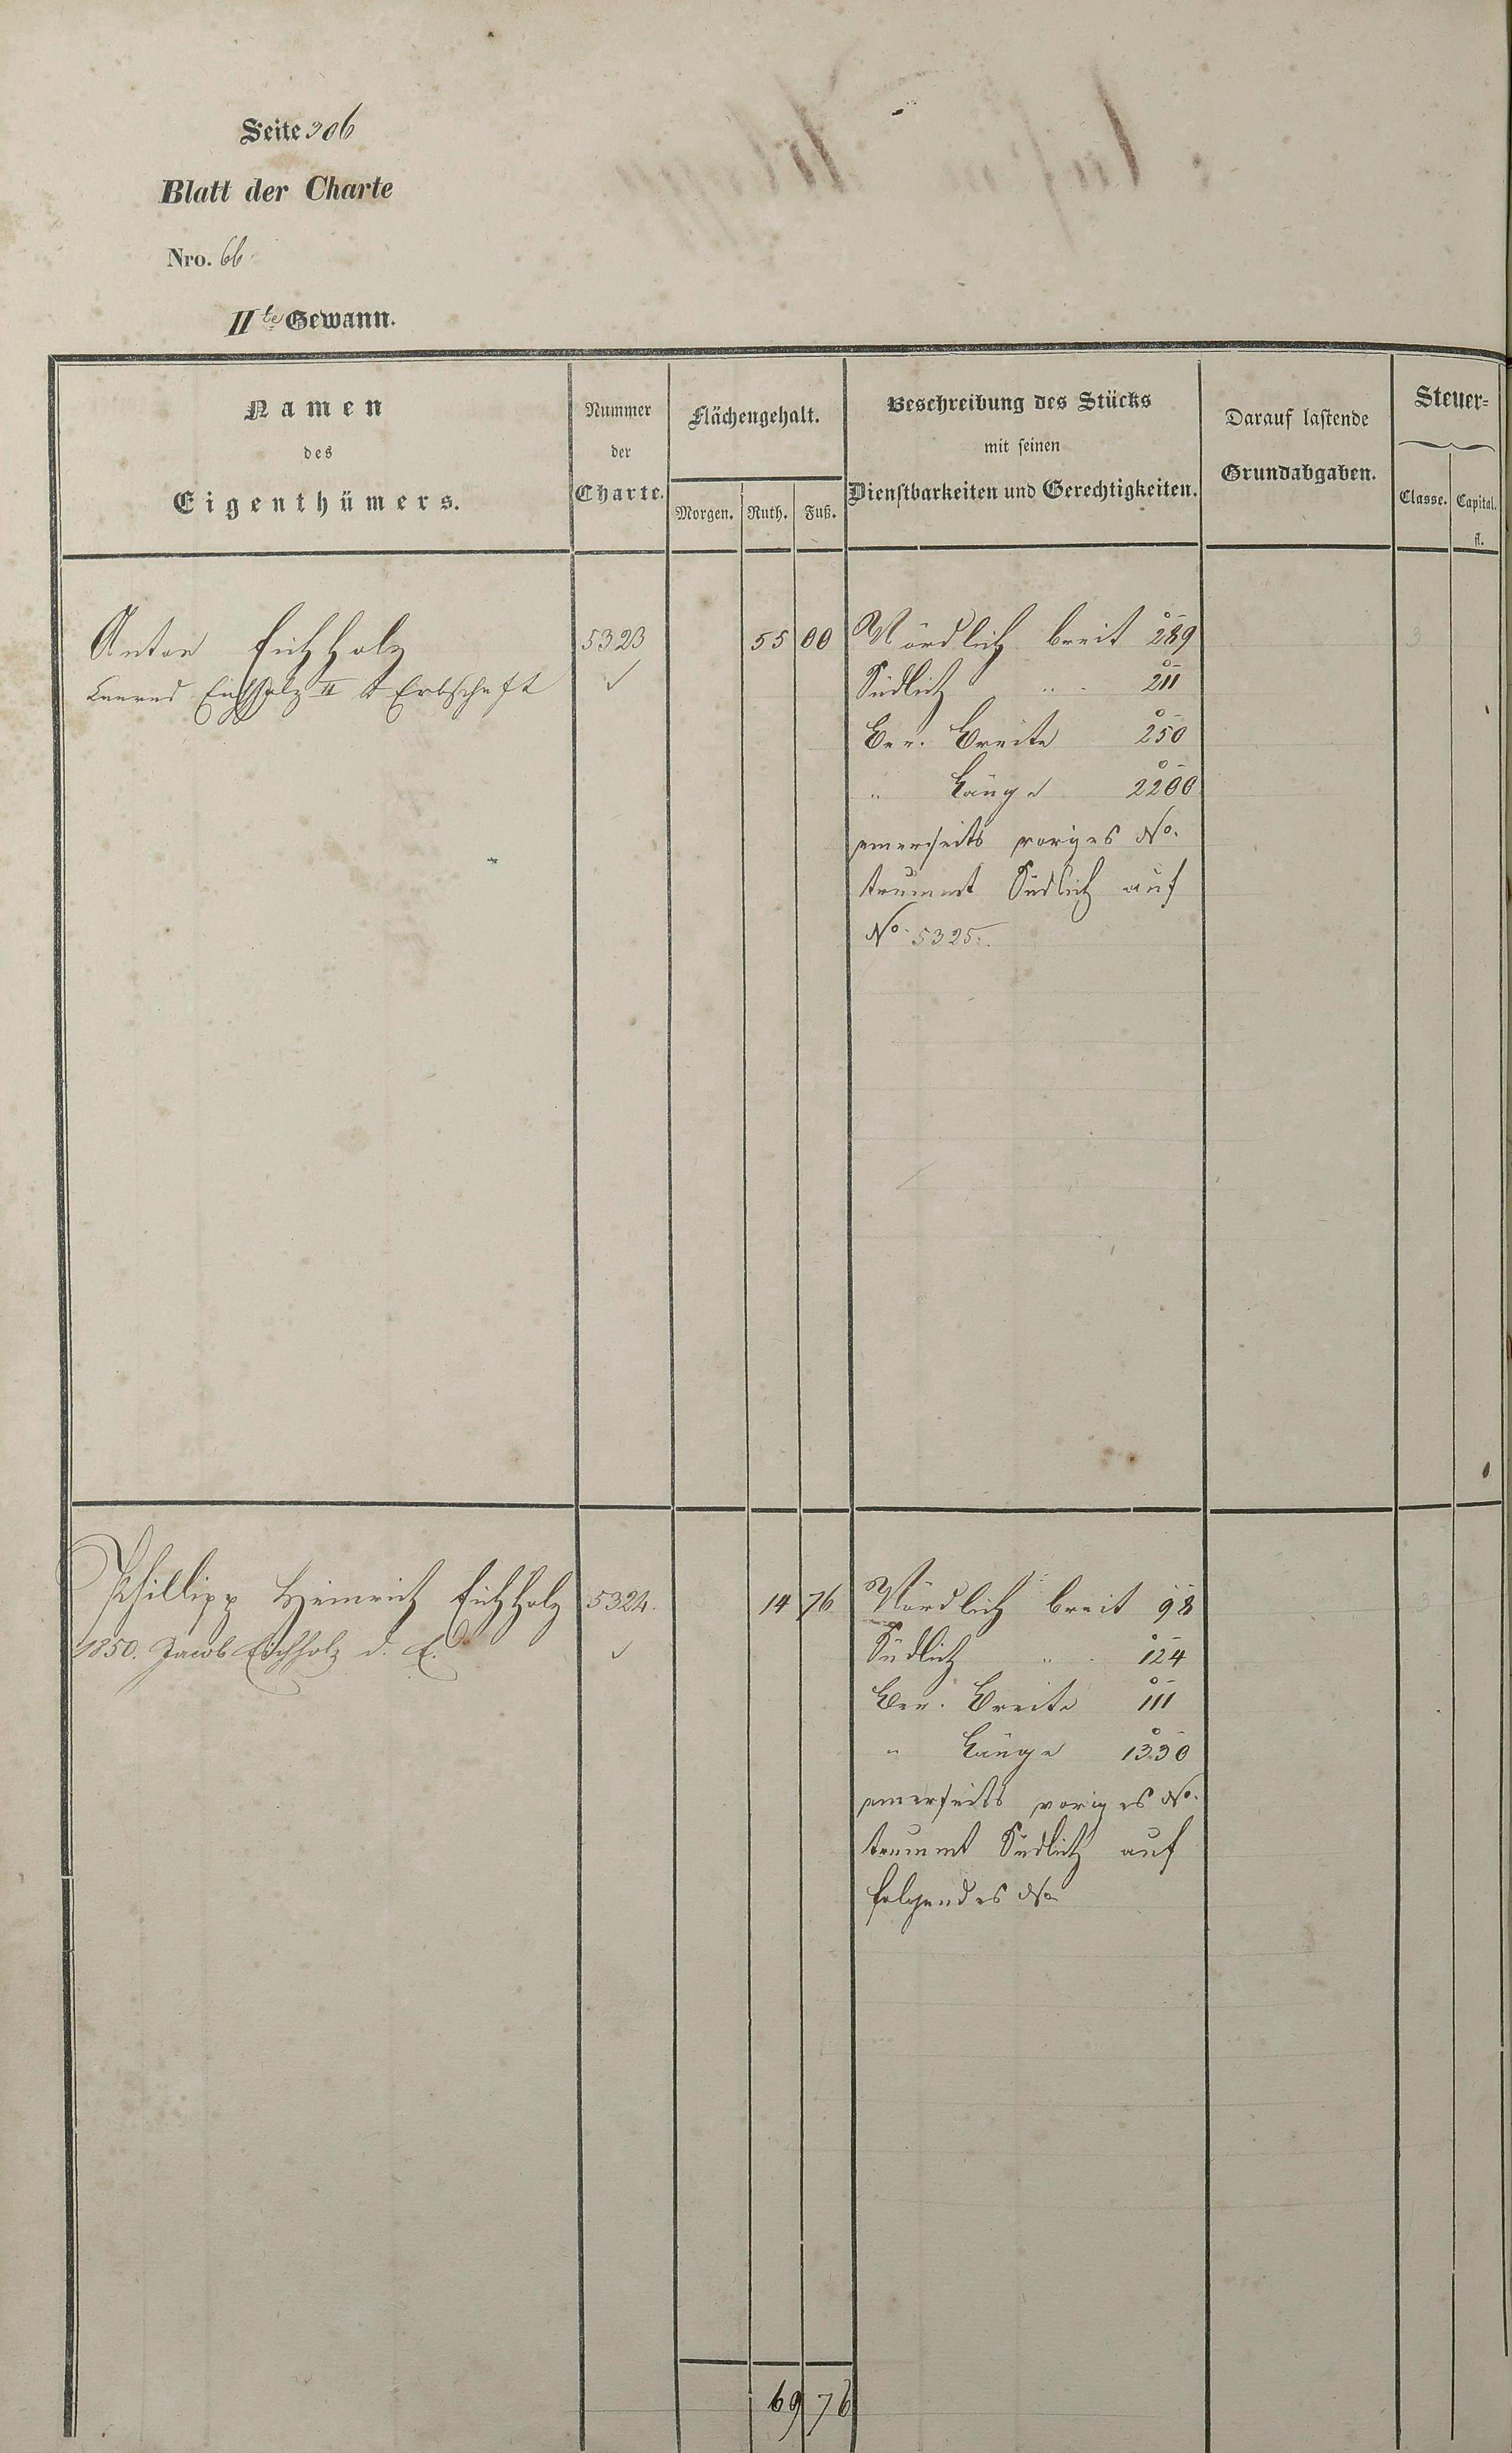 Seite 306
Blatt der Charte
Nro. 66
IIte Gewann.
Namen
des
Eigenthümers.
Nummer
der
Charte.
Flächengehalt.
Morgen. Ruth. Fuß.
Beschreibung des Stücks
mit seinen
Dienstbarkeiten und Gerechtigkeiten.
Darauf lastende
Grundabgaben.
Steuer-
Classe. Capital.
fl.
Anton Eichholz 5323 55 00 Nördlich breit 289 3
Conrad Eichholz II d Erbschaft ✓ Südlich " 211
Ber. Breite 250
" Länge 2200
einerseits voriges No.
trummt Südlich auf
No. 5325.
Phillipp Heinrich Eichholz 5324. 14 76 Nördlich breit 98 3
1850. Jacob Eichholz d. E. ✓ Südlich " 124
Ber. Breite 111
" Länge 1330
einerseits voriges No.
trummt Südlich auf
folgendes No
69 76